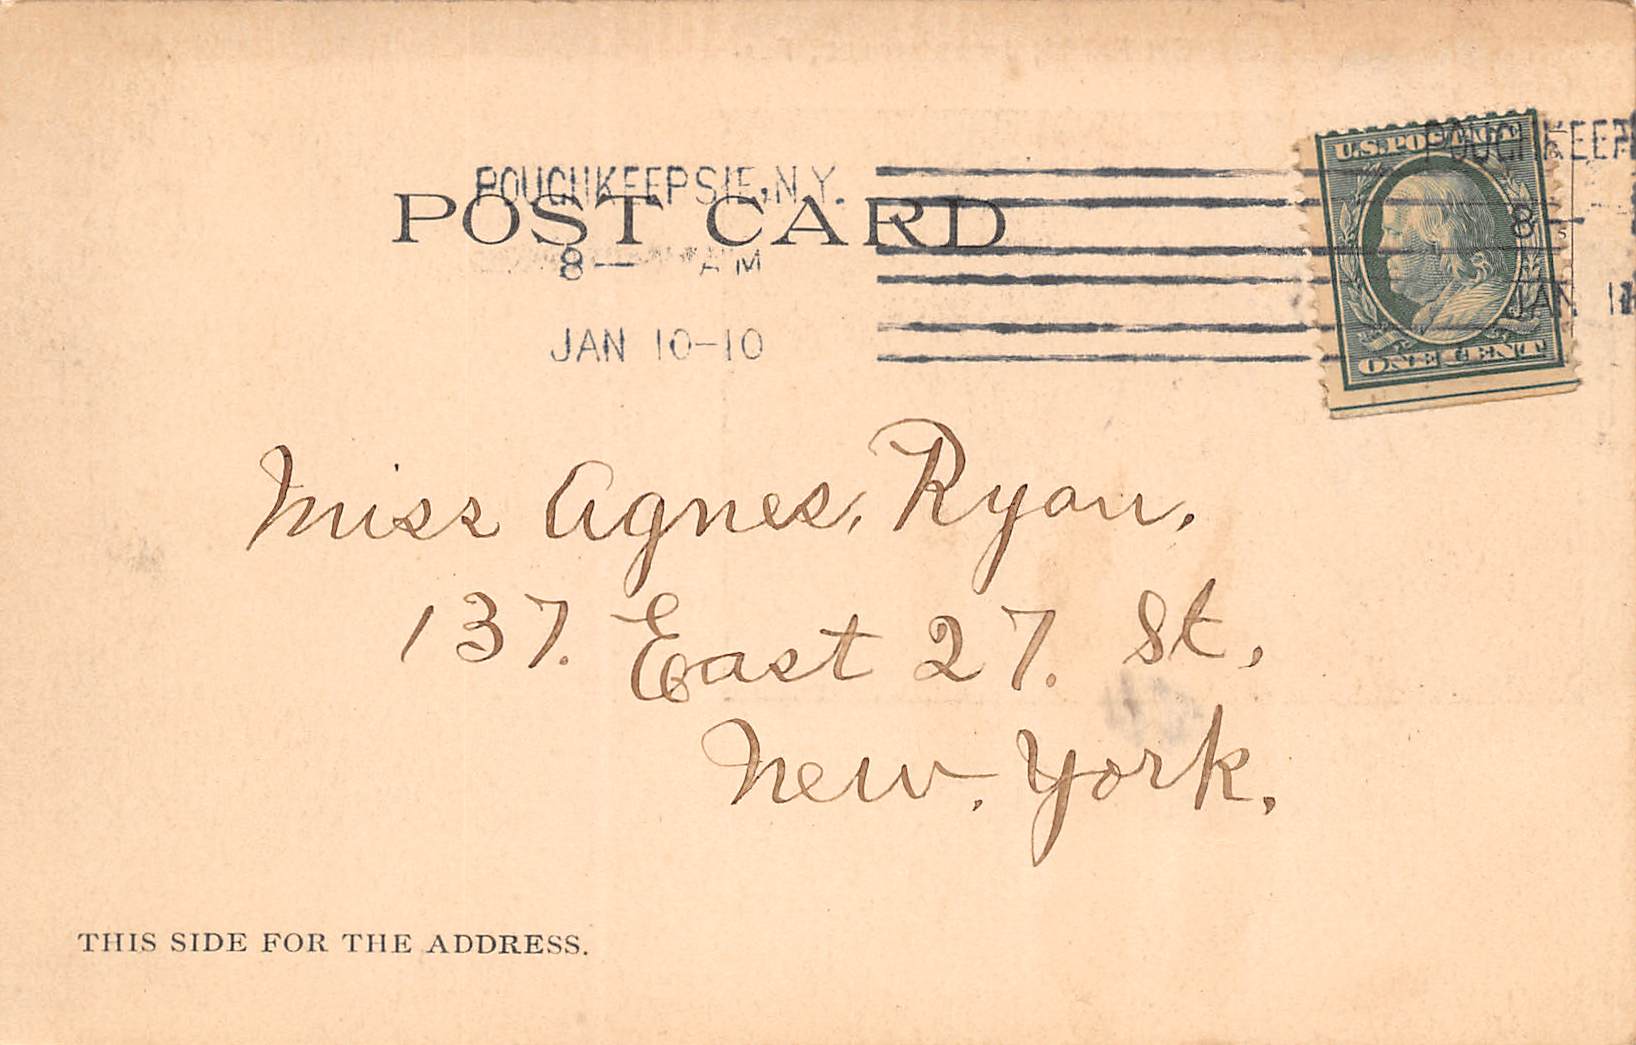 POUGHKEEPSIE, N.Y.
POST CARD
8— AM
JAN 10-10
U.S. POSTAGE
ONE CENT
POUGHKEEP
8—
JAN 1
Miss Agnes, Ryan,
137. East 27. St,
New, York,
THIS SIDE FOR THE ADDRESS.